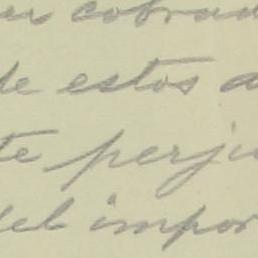 cobrad
de estos a
te perju
del impor